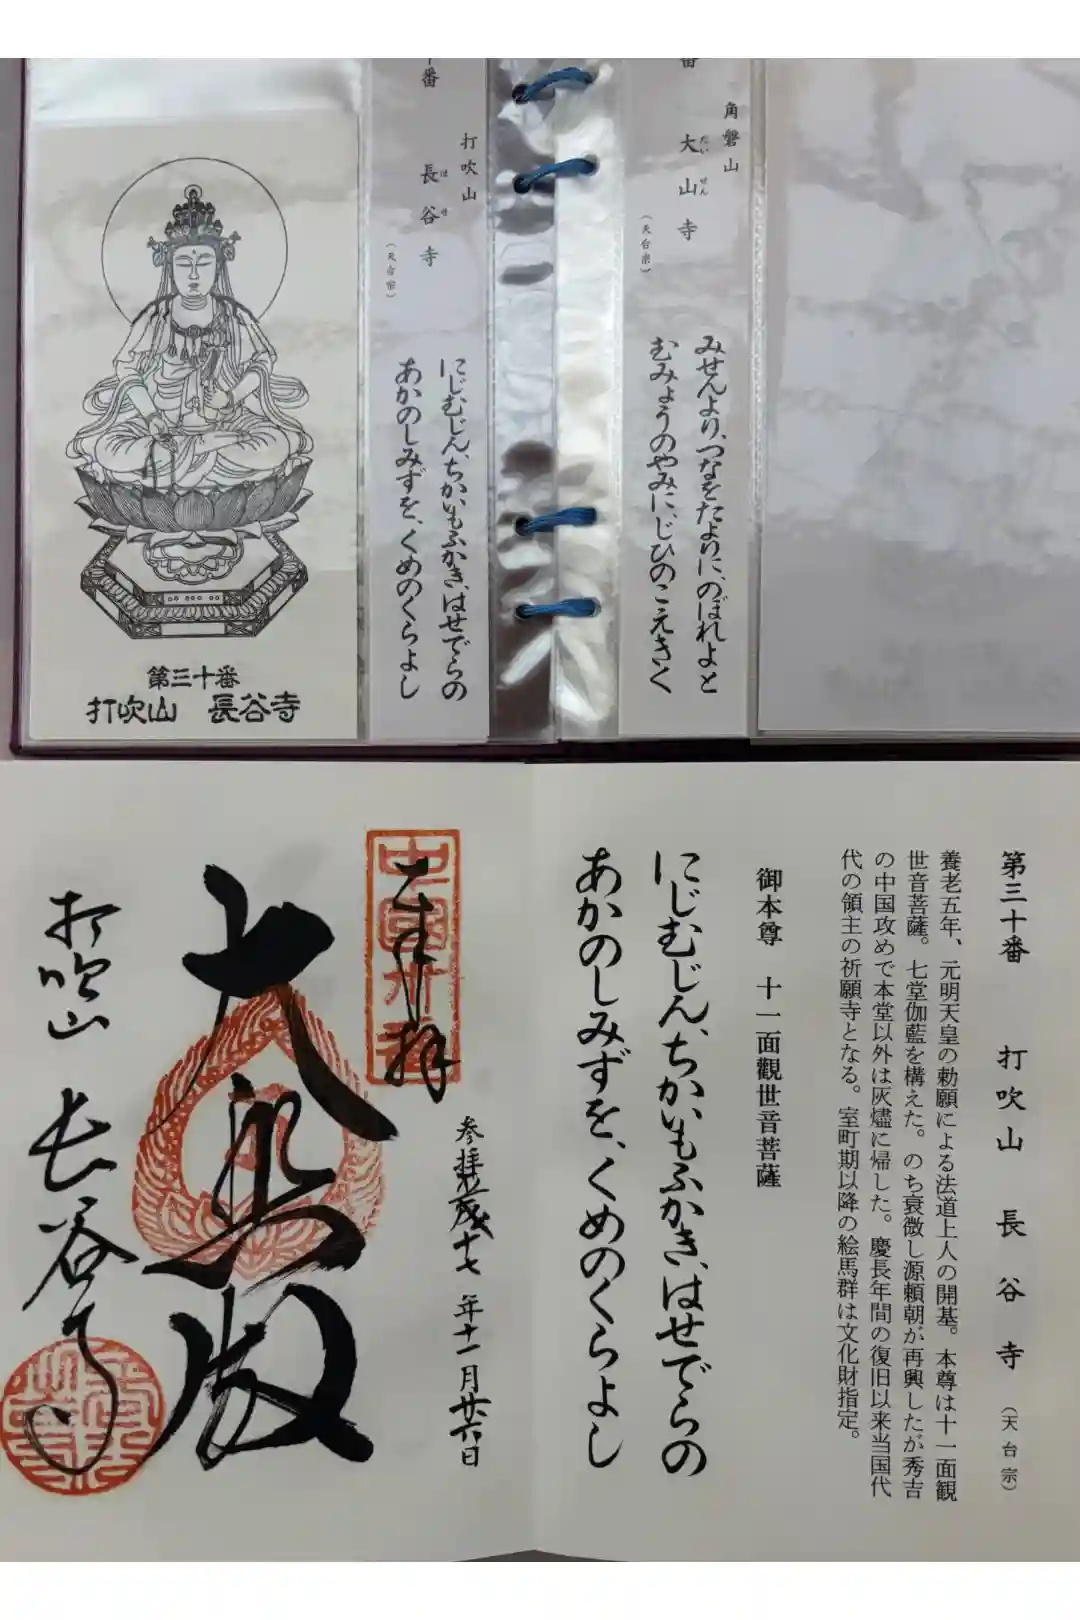 第三十番
打吹山 長谷寺
番
打吹山
長谷寺
はせ
(天台宗)
にじむじん、ちかいもふかき、はせでらの
あかのしみずを、くめのくらよし
番
角磐山
大山寺
だいせん
(天台宗)
みせんより、つなをたよりに、のぼれよと
むみょうのやみに、じひのこえきく
第三十番 打吹山 長谷寺 (天台宗)
養老五年、元明天皇の勅願による法道上人の開基。本尊は十一面観
世音菩薩。七堂伽藍を構えた。のち衰微し源頼朝が再興したが秀吉
の中国攻めで本堂以外は灰燼に帰した。慶長年間の復旧以来当国代
代の領主の祈願寺となる。室町期以降の絵馬群は文化財指定。
御本尊 十一面觀世音菩薩
にじむじん、ちかいもふかき、はせでらの
あかのしみずを、くめのくらよし
奉拜
大悲殿
打吹山 長谷寺